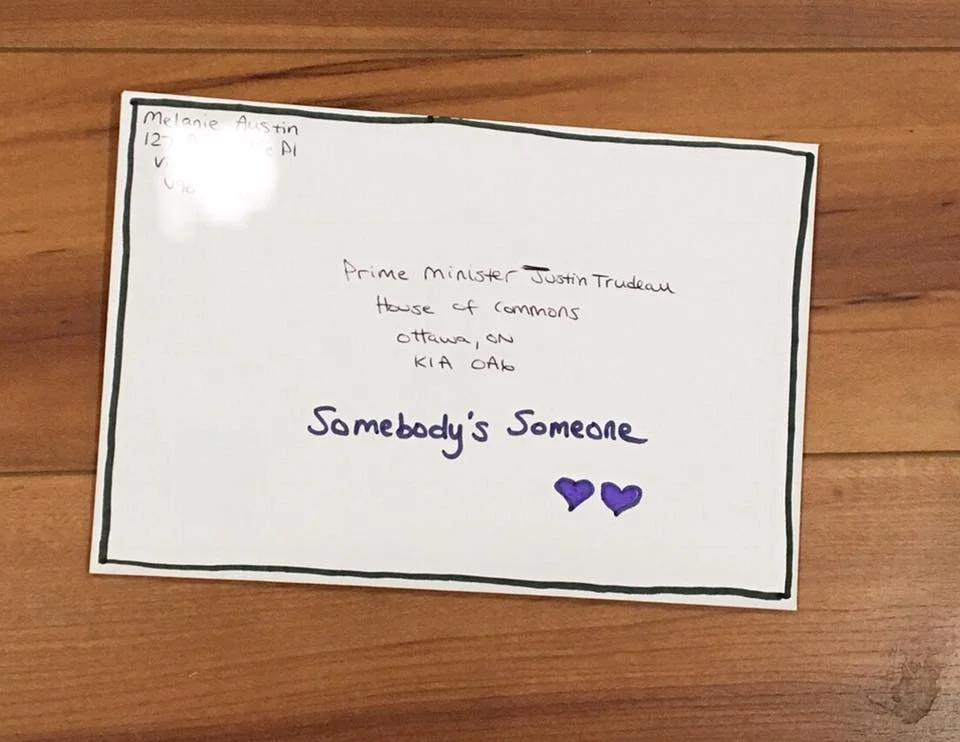 Melanie Austin
Pl
Prime Minister Justin Trudeau
House of Commons
Ottawa, ON
K1A 0A6
Somebody's Someone